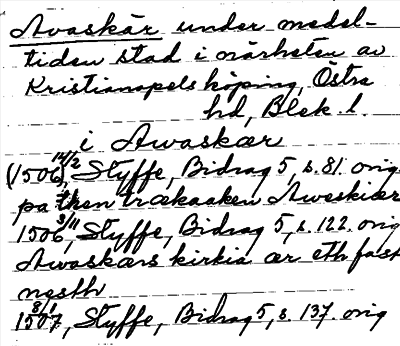 Avaskär under medel-
tiden stad i närheten av
Kristianopels köping, Östra
hd, Blek. l.
i Awaskær
(1506 14/2, Styffe, Bidrag 5, s. 81. orig
pa then trækaaken Aweskiær
1506 3/11, Styffe, Bidrag 5, s. 122. orig
Awaskærs kirkia ær eth fast
nesth
1507 8/1, Styffe, Bidrag 5, s. 137. orig